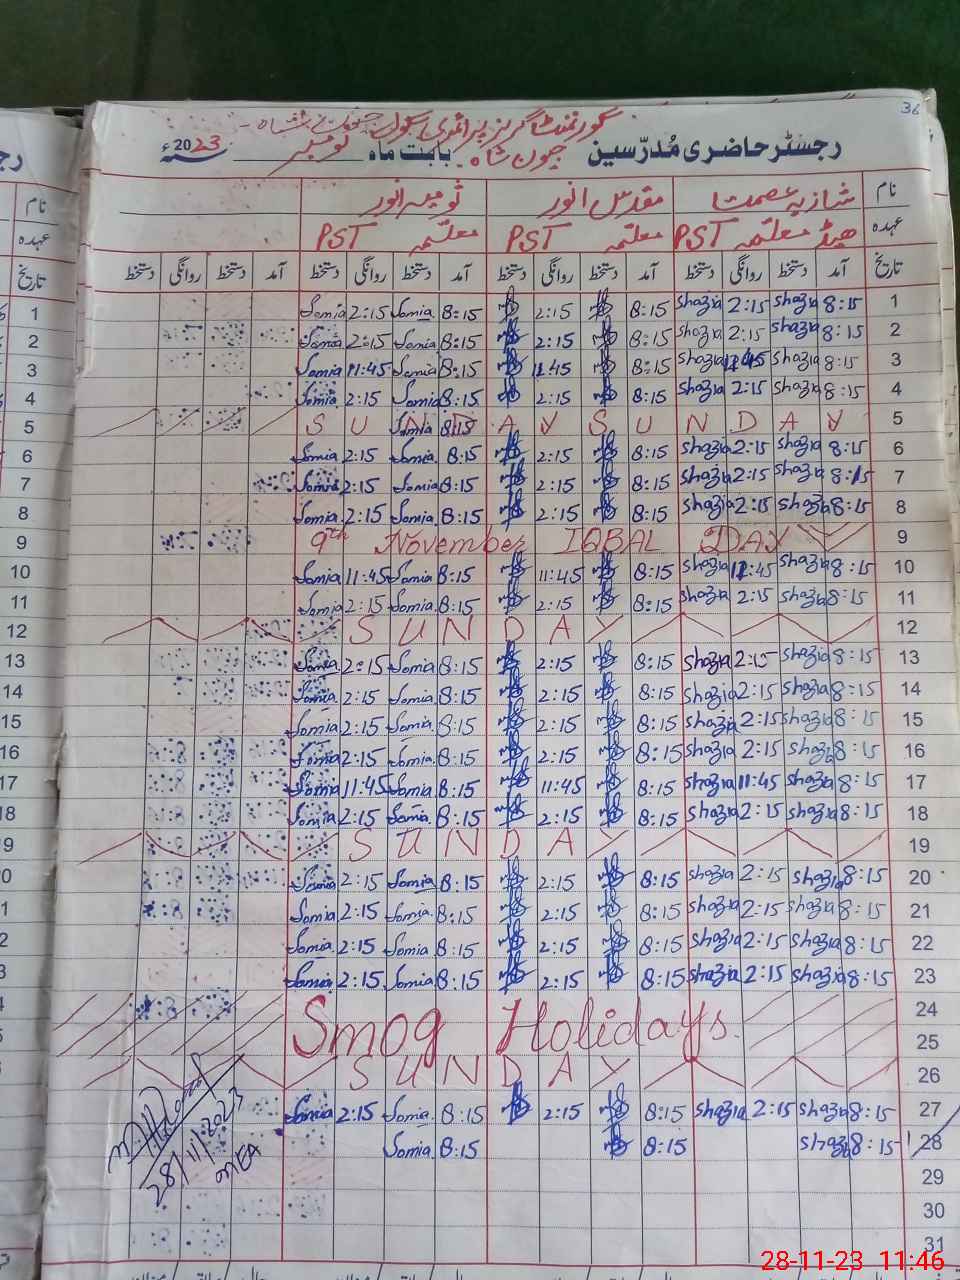 36
گورنمنٹ گرلز پرائمری سکول جیون شاہ
رجسٹر حاضری مُدرّسین جیون شاہ بابت ماہ نومبر سنہ 2023ء
نام شازیہ عصمت مقدس انور ثومیہ انور
عہدہ ہیڈ معلمہ PST معلمہ PST معلمہ PST
تاریخ آمد دستخط روانگی دستخط آمد دستخط روانگی دستخط آمد دستخط روانگی دستخط آمد دستخط روانگی دستخط
1 8:15 Shazia 2:15 Shazia 8:15 2:15 8:15 Somia 2:15 Somia
2 8:15 Shazia 2:15 Shazia 8:15 2:15 8:15 Somia 2:15 Somia
3 8:15 Shazia 11:45 Shazia 8:15 11:45 8:15 Somia 11:45 Somia
4 8:15 Shazia 2:15 Shazia 8:15 2:15 8:15 Somia 2:15 Somia
5 SUNDAY SUNDAY Somia 8:15
6 8:15 Shazia 2:15 Shazia 8:15 2:15 8:15 Somia 2:15 Somia
7 8:15 Shazia 2:15 Shazia 8:15 2:15 8:15 Somia 2:15 Somia
8 8:15 Shazia 2:15 Shazia 8:15 2:15 8:15 Somia 2:15 Somia
9 9th November IQBAL DAY
10 8:15 Shazia 11:45 Shazia 8:15 11:45 8:15 Somia 11:45 Somia
11 8:15 Shazia 2:15 Shazia 8:15 2:15 8:15 Somia 2:15 Somia
12 SUNDAY
13 8:15 Shazia 2:15 Shazia 8:15 2:15 8:15 Somia 2:15 Somia
14 8:15 Shazia 2:15 Shazia 8:15 2:15 8:15 Somia 2:15 Somia
15 8:15 Shazia 2:15 Shazia 8:15 2:15 8:15 Somia 2:15 Somia
16 8:15 Shazia 2:15 Shazia 8:15 2:15 8:15 Somia 2:15 Somia
17 8:15 Shazia 11:45 Shazia 8:15 11:45 8:15 Somia 11:45 Somia
18 8:15 Shazia 2:15 Shazia 8:15 2:15 8:15 Somia 2:15 Somia
19 SUNDAY
20 8:15 Shazia 2:15 Shazia 8:15 2:15 8:15 Somia 2:15 Somia
21 8:15 Shazia 2:15 Shazia 8:15 2:15 8:15 Somia 2:15 Somia
22 8:15 Shazia 2:15 Shazia 8:15 2:15 8:15 Somia 2:15 Somia
23 8:15 Shazia 2:15 Shazia 8:15 2:15 8:15 Somia 2:15 Somia
24 Smog Holidays
25
26 SUNDAY
27 8:15 Shazia 2:15 Shazia 8:15 2:15 8:15 Somia 2:15 Somia
28 8:15 Shazia 8:15 8:15 Somia
28/11/2023
MEA
29
30
31
28-11-23 11:46